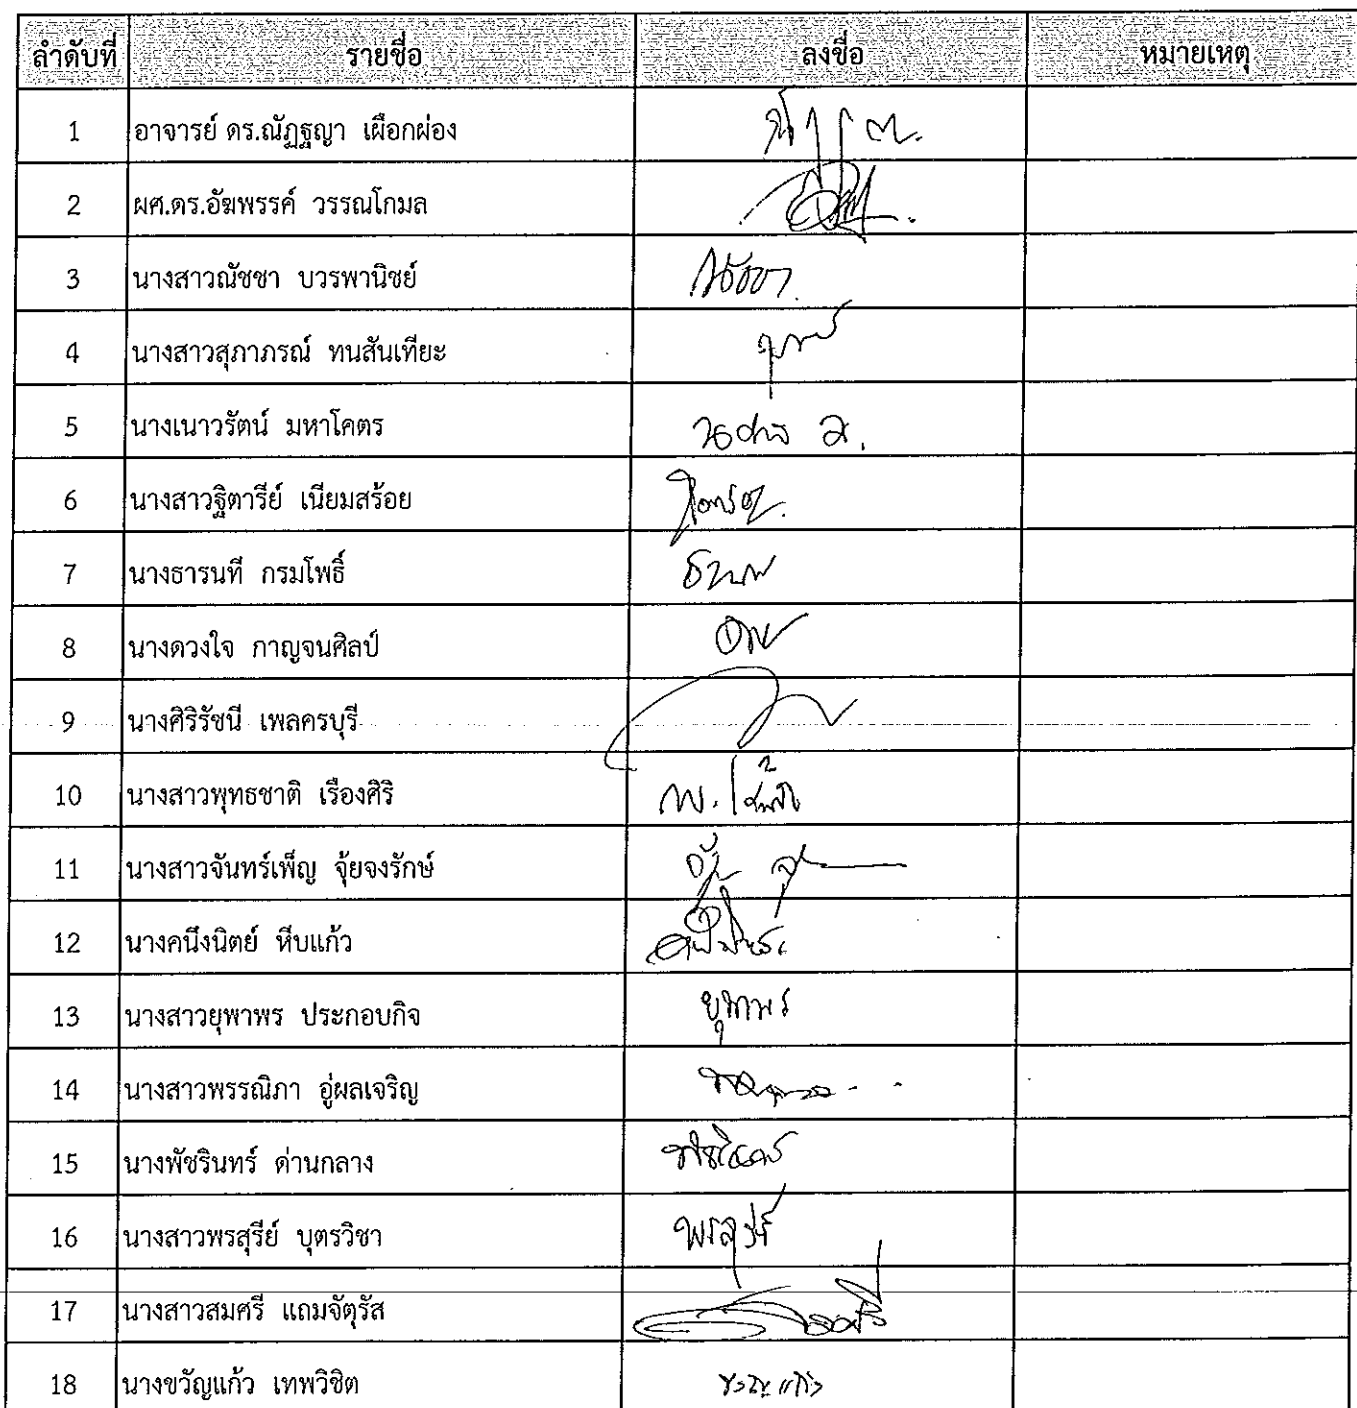 ลำดับที่ รายชื่อ ลงชื่อ หมายเหตุ
1 อาจารย์ ดร.ณัฏฐญา เผือกผ่อง
2 ผศ.ดร.อัฆพรรค์ วรรณโกมล
3 นางสาวณัชชา บวรพานิชย์ ณัชชา
4 นางสาวสุภาภรณ์ ทนสันเทียะ
5 นางเนาวรัตน์ มหาโคตร
6 นางสาวฐิตารีย์ เนียมสร้อย
7 นางธารนที กรมโพธิ์
8 นางดวงใจ กาญจนศิลป์
9 นางศิริรัชนี เพลครบุรี
10 นางสาวพุทธชาติ เรืองศิริ
11 นางสาวจันทร์เพ็ญ จุ้ยจงรักษ์
12 นางคนึงนิตย์ หีบแก้ว
13 นางสาวยุพาพร ประกอบกิจ ยุพาพร
14 นางสาวพรรณิภา อู่ผลเจริญ
15 นางพัชรินทร์ ด่านกลาง
16 นางสาวพรสุรีย์ บุตรวิชา พรสุรีย์
17 นางสาวสมศรี แถมจัตุรัส
18 นางขวัญแก้ว เทพวิชิต ขวัญแก้ว